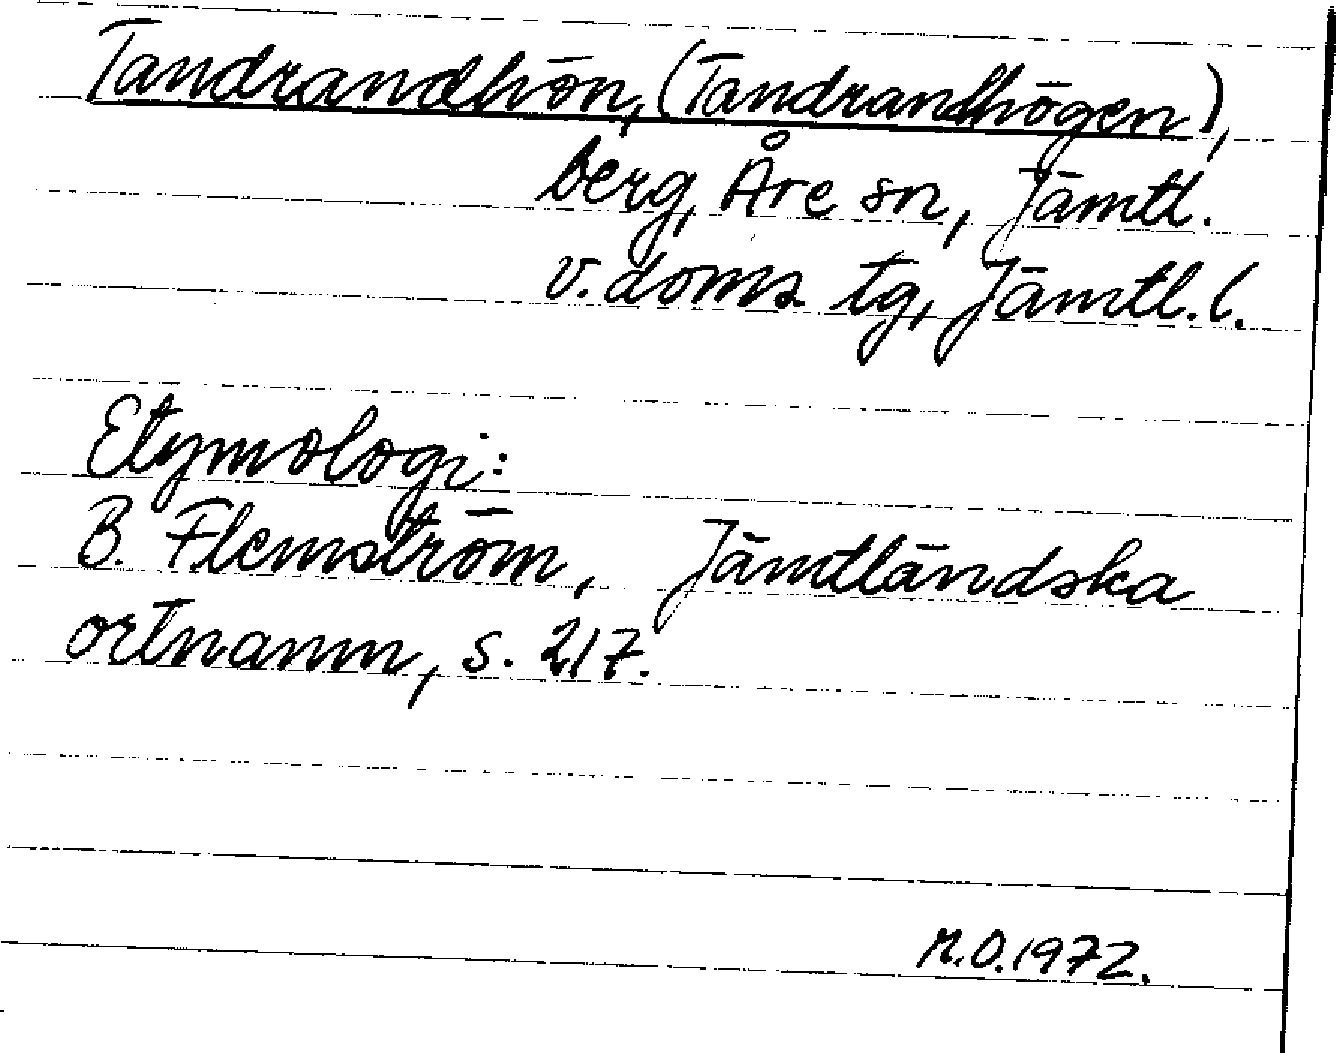 Tandrandhön, (Tandrandhögen),
berg, Åre sn, Jämtl.
v. doms. tg, Jämtl. l.
Etymologi:
B. Flemström, Jämtländska
ortnamn, s. 217.
M.O. 1972.